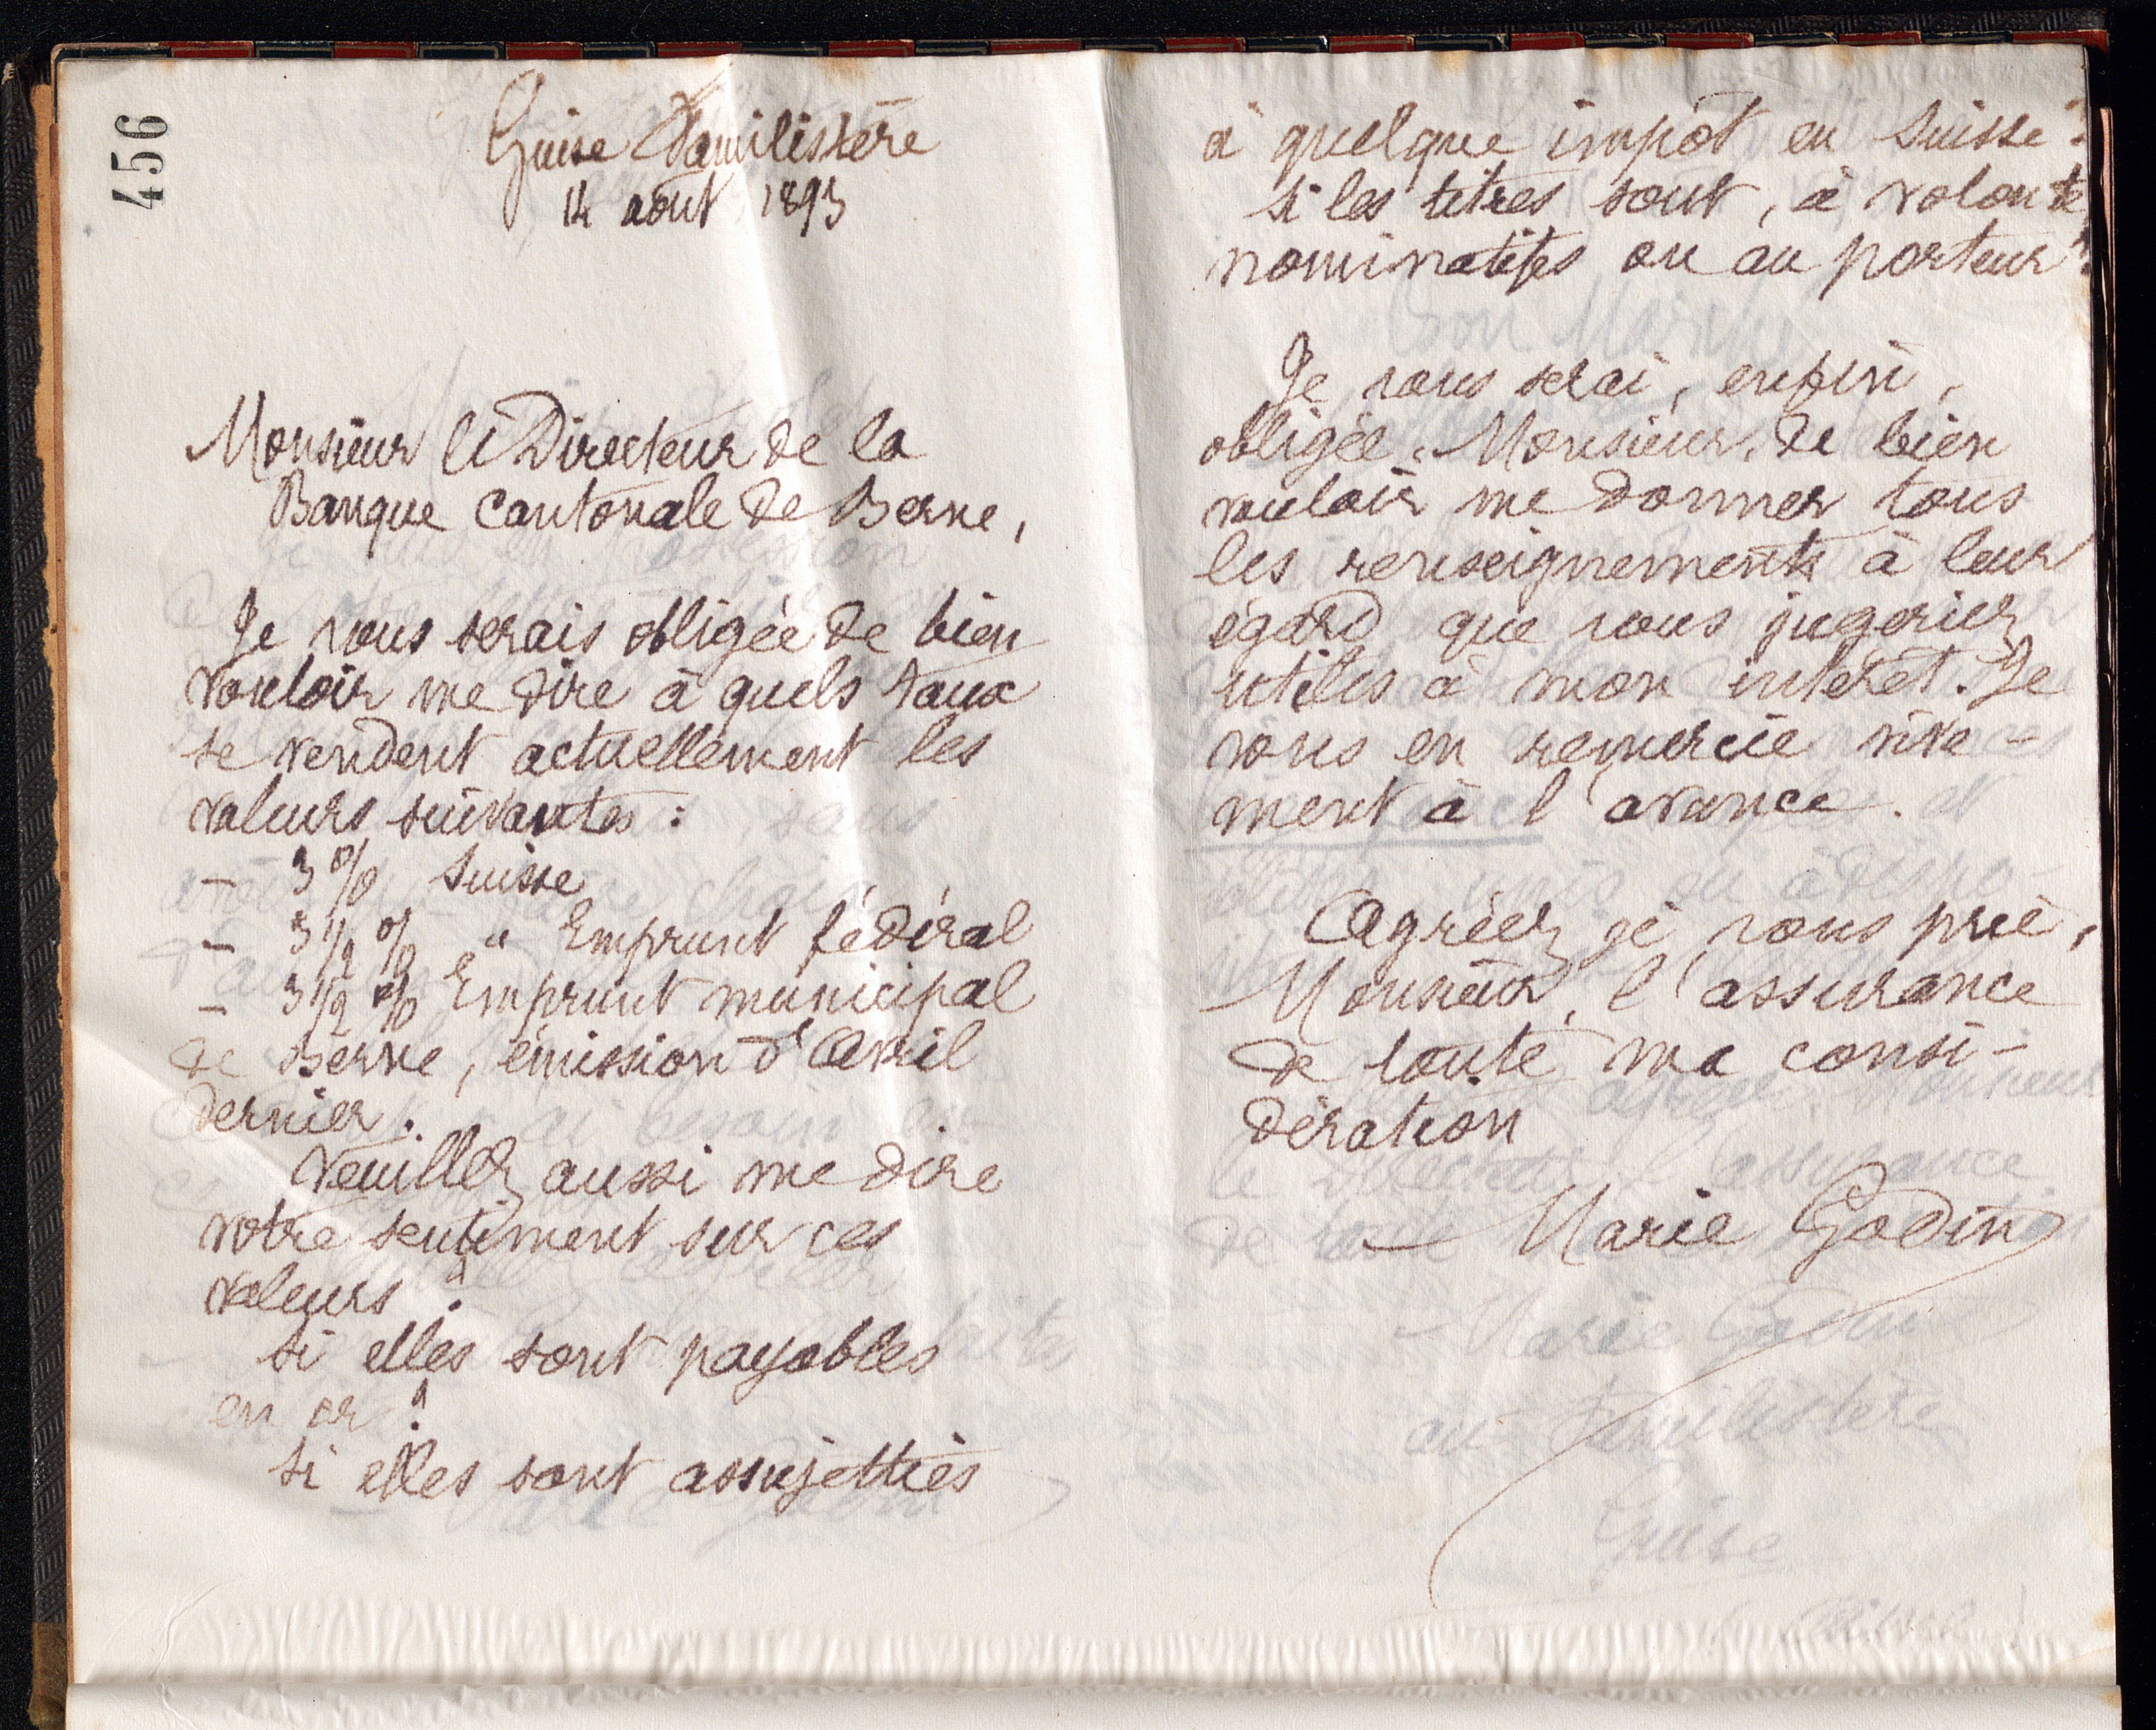 456
Guise Familistère
14 août 1893
Monsieur le Directeur de la
Banque Cantonale de Berne,
Je vous serais obligée de bien
vouloir me dire à quels taux
se vendent actuellement les
valeurs suivantes :
— 3 % Suisse
— 3 1/2 % " Emprunt fédéral
— 3 1/2 % Emprunt municipal
de Berne, émission d'Avril
dernier.
Veuillez aussi me dire
votre sentiment sur ces
valeurs ?
Si elles sont payables
en or ?
Si elles sont assujetties
à quelque impôt en Suisse ?
Si les titres sont, à volonté,
nominatifs ou au porteur ?
Je vous serai, enfin,
obligée, Monsieur, de bien
vouloir me donner tous
les renseignements à leur
égard que vous jugeriez
utiles à mon intérêt. Je
vous en remercie vive-
ment à l'avance.
Agréez, je vous prie,
Monsieur, l'assurance
de toute ma consi-
dération
— Marie Godin